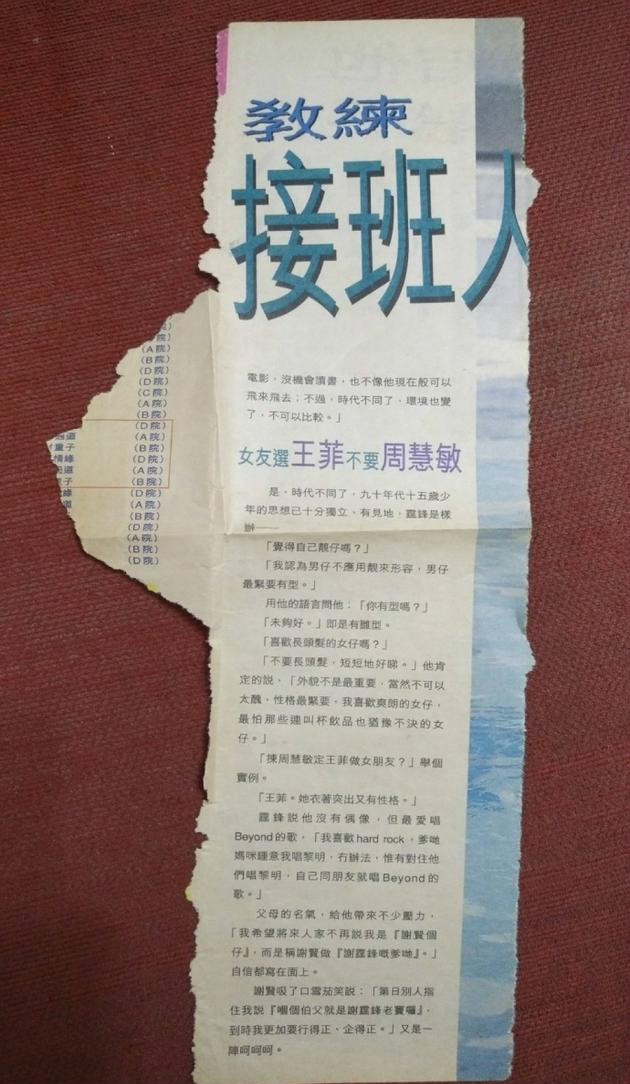 教練
接班人
電影，沒機會讀書，也不像他現在般可以
飛來飛去；不過，時代不同了，環境也變
了，不可以比較。」
女友選王菲不要周慧敏
是，時代不同了，九十年代十五歲少
年的思想已十分獨立、有見地，霆鋒是樣
辦——
「覺得自己靚仔嗎？」
「我認為男仔不應用靚來形容，男仔
最緊要有型。」
用他的語言問他：「你有型嗎？」
「未夠好。」即是有雛型。
「喜歡長頭髮的女仔嗎？」
「不要長頭髮，短短地好睇。」他肯
定的說，「外貌不是最重要，當然不可以
太醜，性格最緊要，我喜歡爽朗的女仔，
最怕那些連叫杯飲品也猶豫不決的女
仔。」
「揀周慧敏定王菲做女朋友？」舉個
實例。
「王菲。她衣著突出又有性格。」
霆鋒說他沒有偶像，但最愛唱
Beyond的歌，「我喜歡hard rock，爹哋
媽咪鍾意我唱黎明，冇辦法，惟有對住他
們唱黎明，自己同朋友就唱Beyond的
歌。」
父母的名氣，給他帶來不少壓力，
「我希望將來人家不再說我是『謝賢個
仔』，而是稱謝賢做『謝霆鋒嘅爹哋』。」
自信都寫在面上。
謝賢吸了口雪茄笑說：「第日別人指
住我說『嗰個伯父就是謝霆鋒老竇囉』，
到時我更加要行得正、企得正。」又是一
陣呵呵呵。
院）
（A院）
（B院）
（D院）
（D院）
（C院）
（A院）
（B院）
（D院）
道（A院）
童子（B院）
情緣（D院）
道（A院）
子（B院）
緣（D院）
道（A院）
（B院）
（D院）
（A院）
（B院）
（D院）